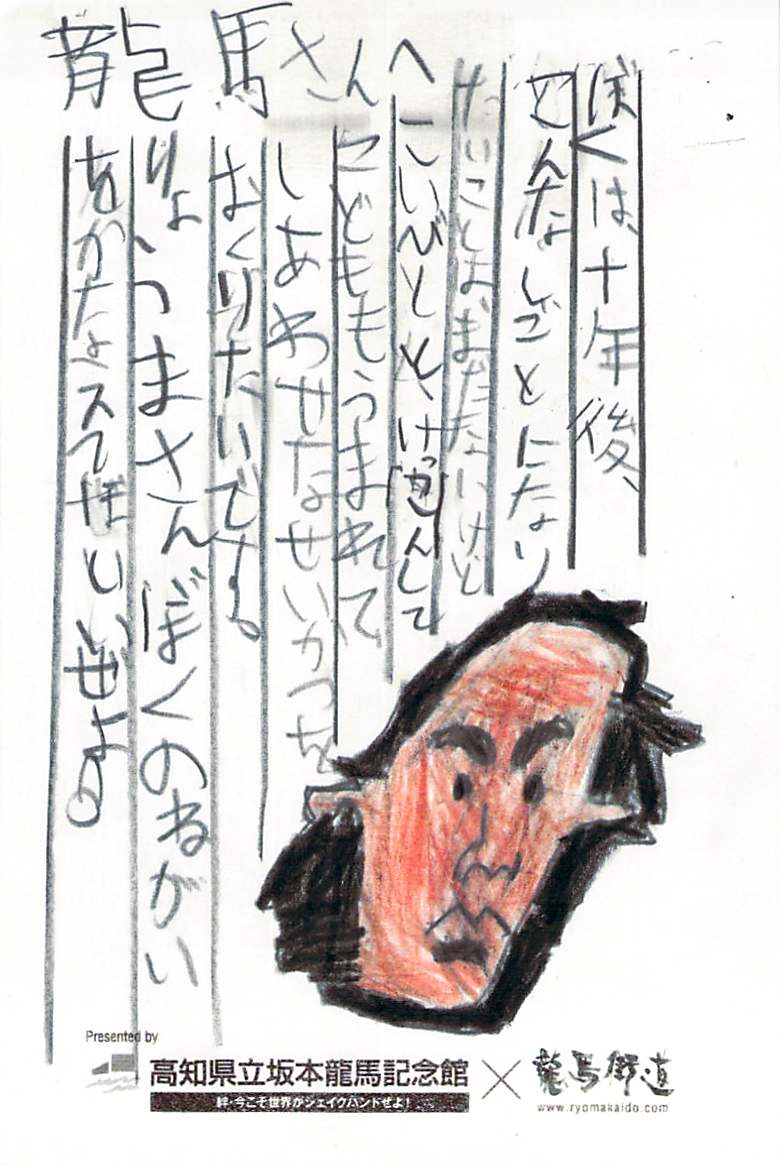 龍馬さんへ
ぼくは、十年後、
どんなしごとになり
たいことは、まだないけど
こいびとと、けっこんして
こどももうまれて
しあわせなせいかつを
おくりたいです。
りょうまさんぼくのねがい
をかなえてほしいぜよ。
Presented by
高知県立坂本龍馬記念館 × 龍馬街道
絆・今こそ世界がシェイクハンドせよ!
www.ryomakaido.com